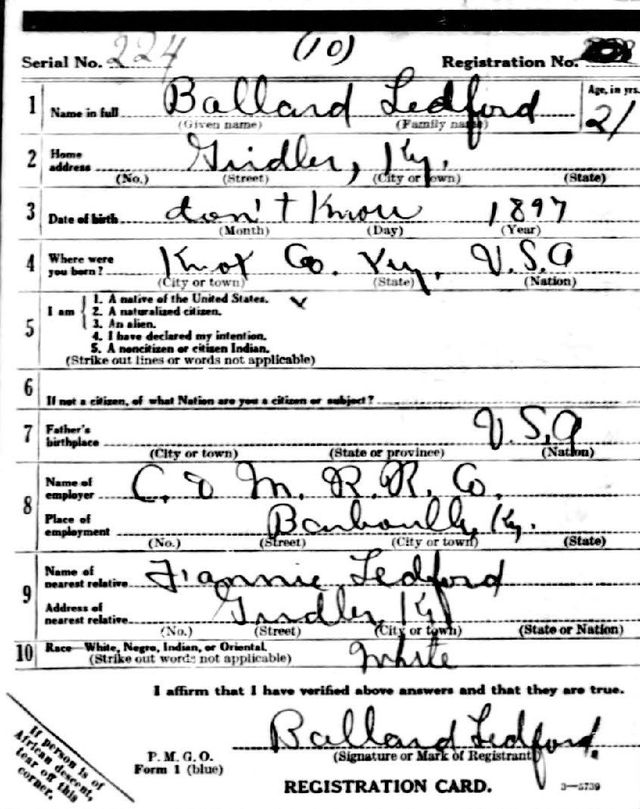 (10)
Serial No. 224 Registration No.
1 Name in full Ballard Ledford Age, in yrs. 21
(Given name) (Family name)
2 Home address Girdler, Ky.
(No.) (Street) (City or town) (State)
3 Date of birth don't Know 1897
(Month) (Day) (Year)
4 Where were you born? Knox Co. Ky. U.S.A
(City or town) (State) (Nation)
5 I am
1. A native of the United States. x
2. A naturalized citizen.
3. An alien.
4. I have declared my intention.
5. A noncitizen or citizen Indian.
(Strike out lines or words not applicable)
6 If not a citizen, of what Nation are you a citizen or subject?
7 Father's birthplace U.S.A
(City or town) (State or province) (Nation)
8 Name of employer C. & M. R.R. Co.
Place of employment Ky.
(No.) (Street) (City or town) (State)
9 Name of nearest relative Ledford
Address of nearest relative Girdler Ky
(No.) (Street) (City or town) (State or Nation)
10 Race—White, Negro, Indian, or Oriental. White
(Strike out words not applicable)
I affirm that I have verified above answers and that they are true.
Ballard Ledford.
P. M. G. O. (Signature or Mark of Registrant)
Form 1 (blue)
REGISTRATION CARD. 3—5739
If person is of
African descent,
tear off this
corner.